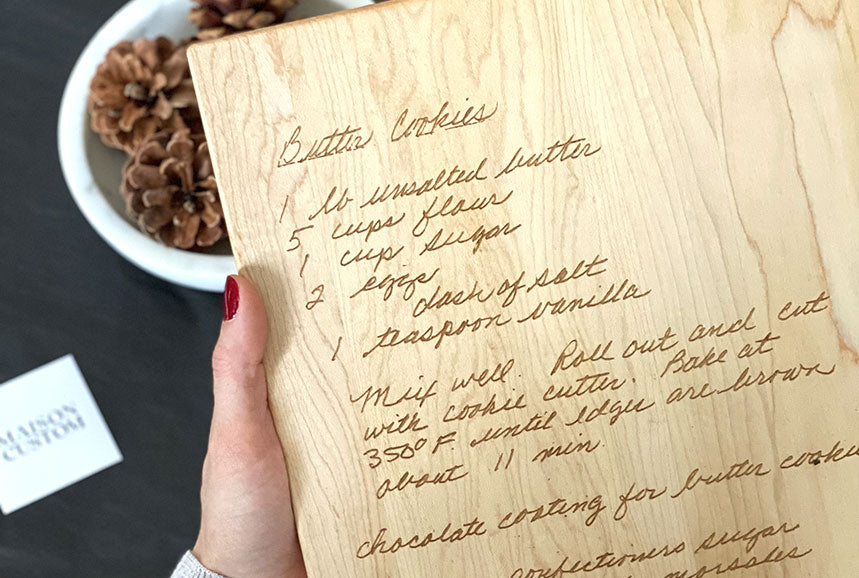 Butter Cookies
1 lb unsalted butter
5 cups flour
1 cup sugar
2 eggs
dash of salt
1 teaspoon vanilla
Mix well. Roll out and cut
with cookie cutter. Bake at
350° F. until edges are brown
about 11 min.
chocolate coating for butter
confectioners sugar
morsales
MAISON
CUSTOM